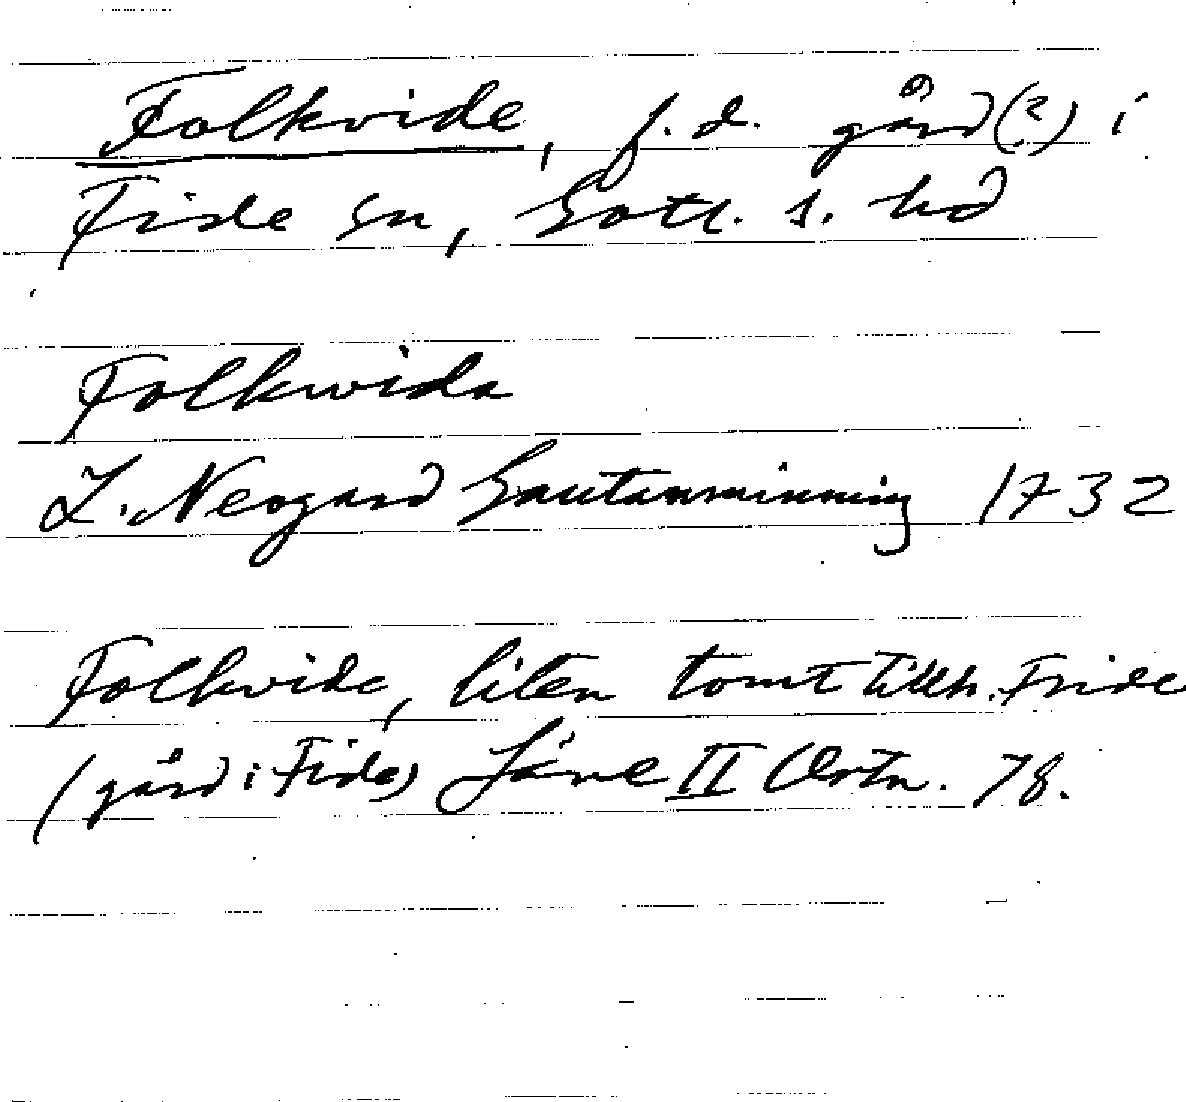 Folkvide, f.d. gård(?) i
Fide sn, Gotl. s. hd
Folkwida
L. Neogard Gautauminning 1732
Folkvide, liten tomt tillh. Fride
(gård i Fide) Säve II Ortn. 78.